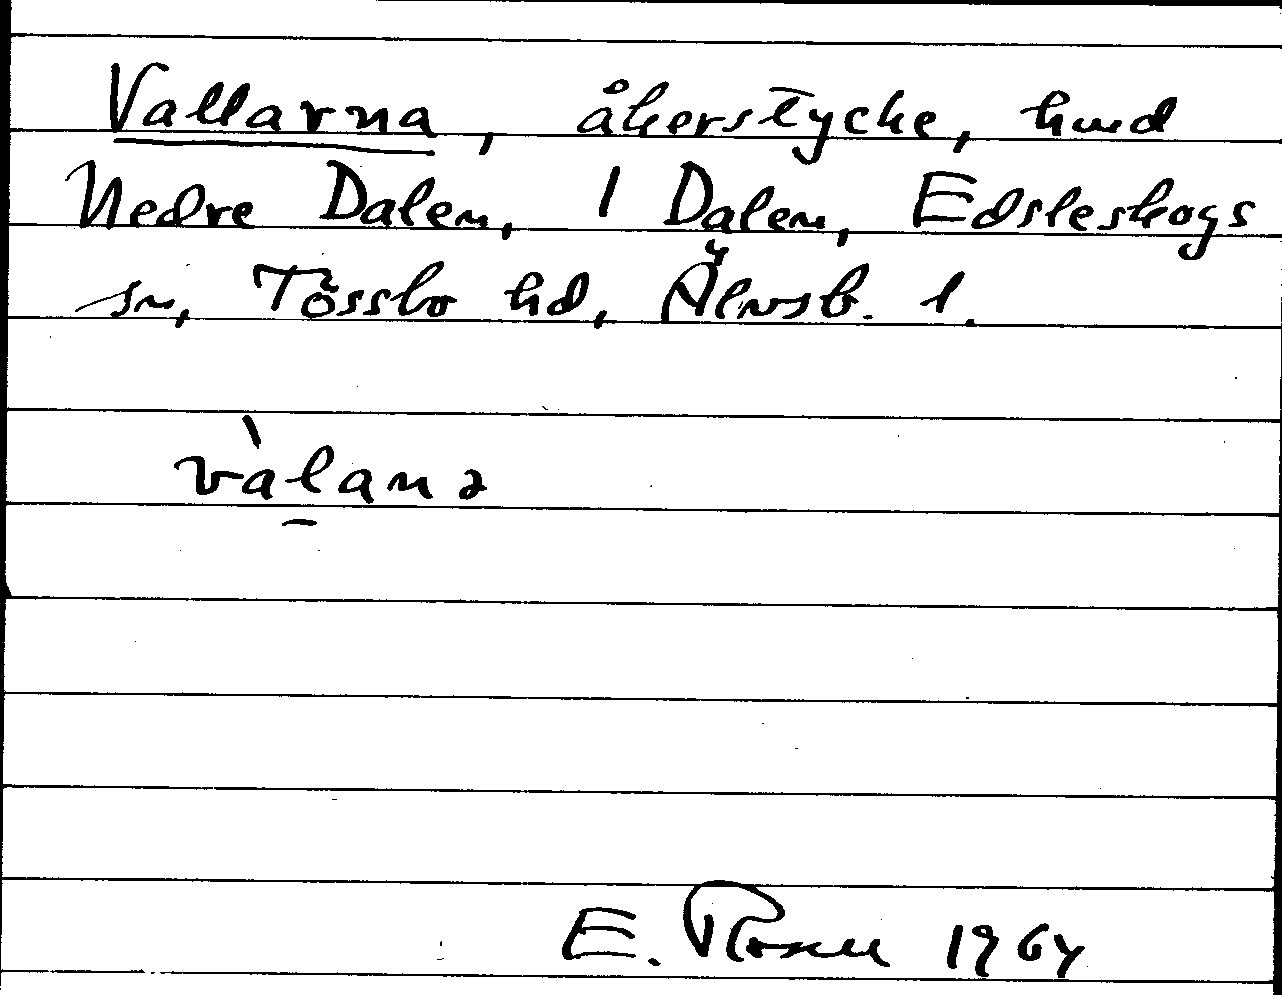 Vallarna, åkerstycke, hmd
Nedre Dalen, 1 Dalen, Edsleskogs
sn, Tössbo hd, Älvsb. l.
vàl̠anə
E. Rosell 1964